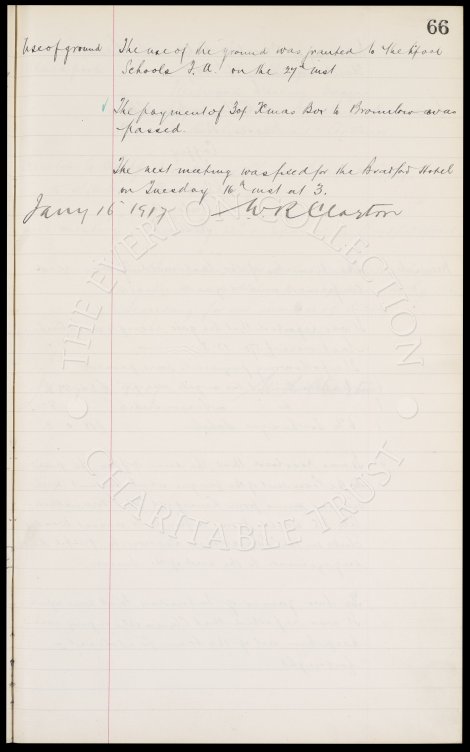 66
Use of ground The use of the ground was granted to the L'pool
Schools F.A. on the 27th inst
The payment of 30/ Xmas Box to Bromilow was
passed.
The next meeting was fixed for the Bradford Hotel
on Tuesday 16th inst at 3.
Jany 16 1917 W R Clayton
THE EVERTON COLLECTION
CHARITABLE TRUST